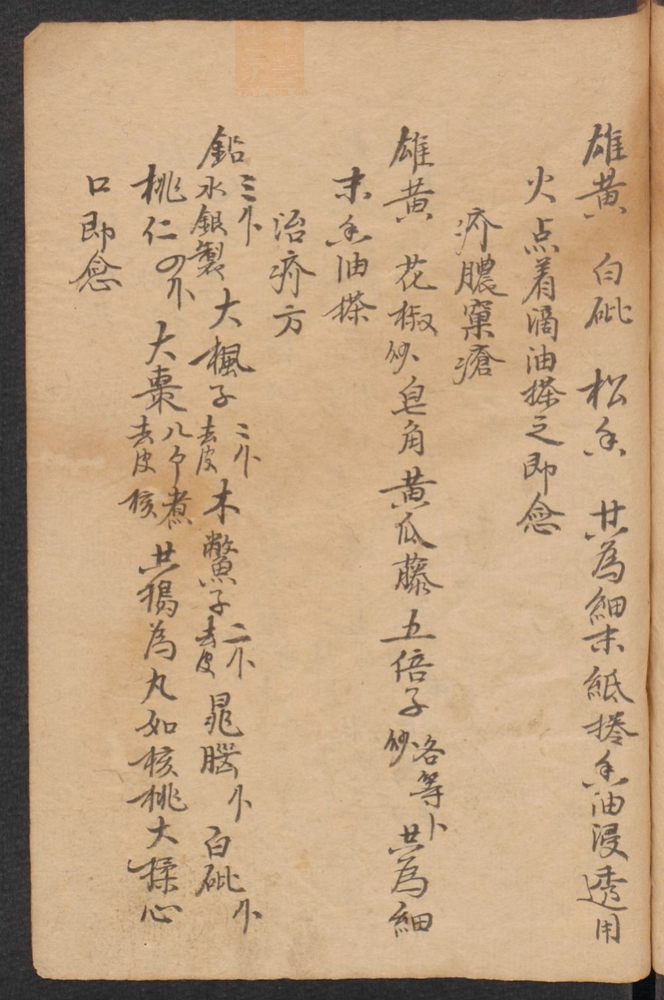 雄黄 白砒 松香 共為細末紙捲香油浸透用
火点着滴油搽之即愈
疥膿窠瘡
雄黄 花椒炒 皂角 黄瓜藤 五倍子炒 各等卜 共為細
末香油搽
治疥方
鉛水銀製三卜 大楓子去皮二卜 木鱉子去皮二卜 晁腦卜 白砒卜
桃仁四卜 大棗八个煮去皮核 共搗為丸如核桃大揉心
口即愈